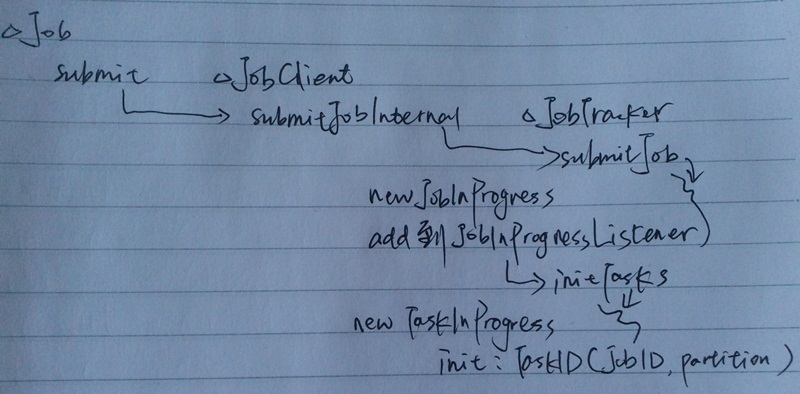 △Job
submit △JobClient
submitJobInternal △JobTracker
submitJob
new JobInProgress
add到JobInProgressListener
initTasks
new TaskInProgress
init: TaskID(JobID, partition)